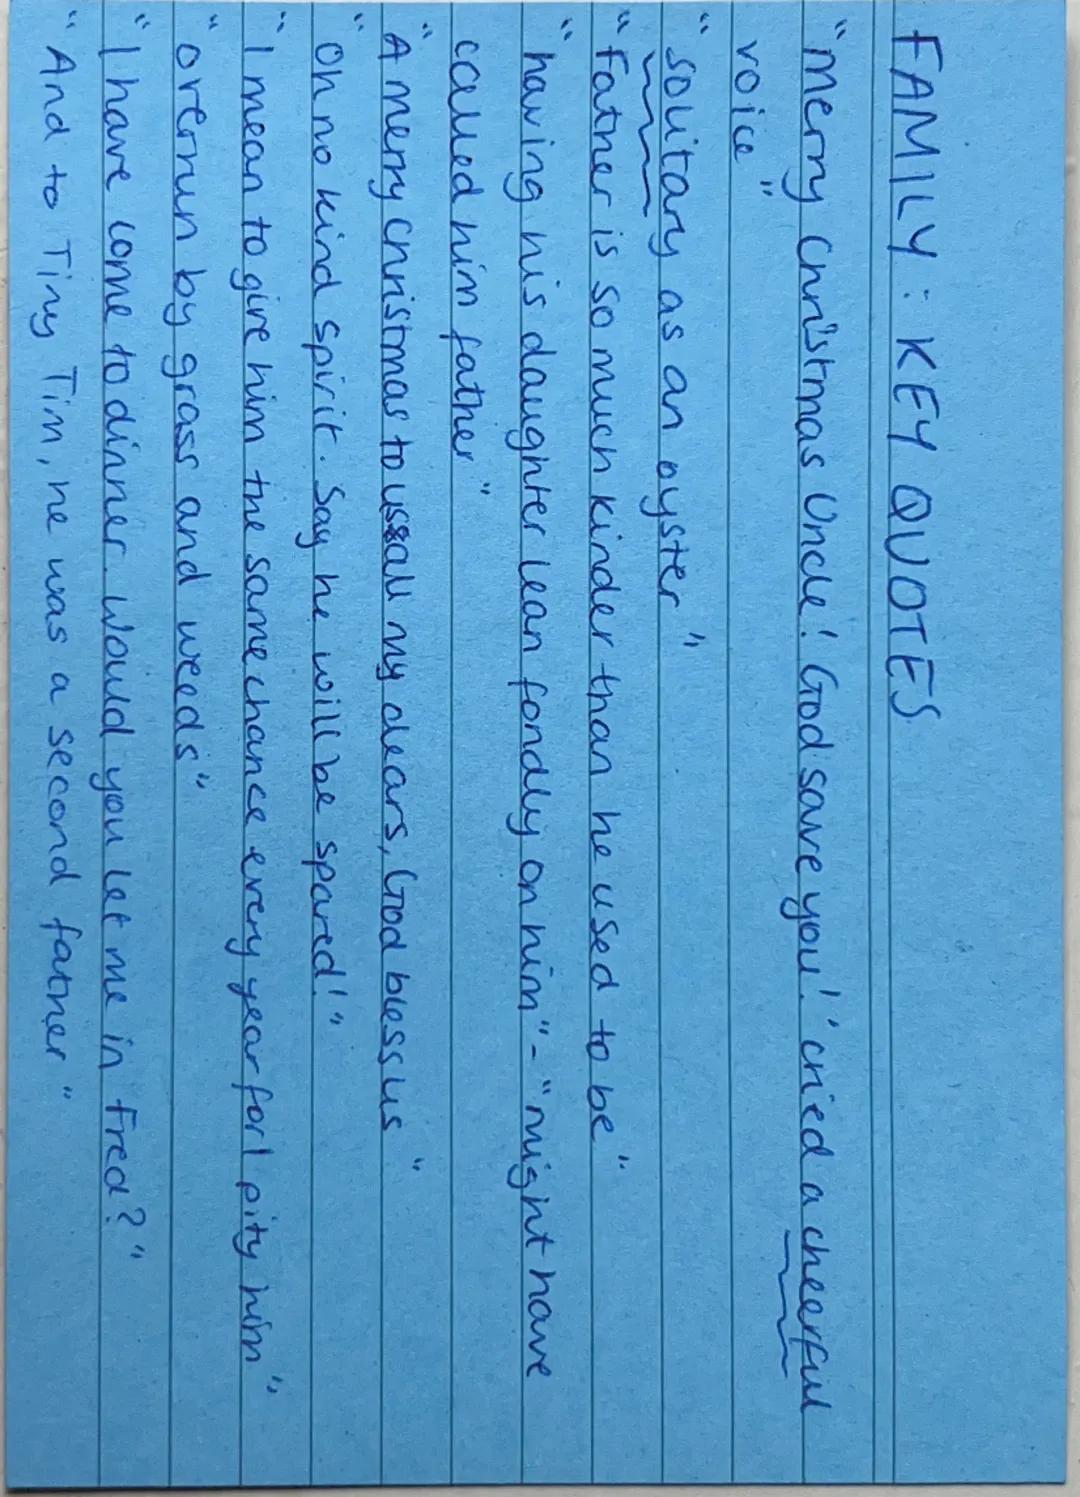 FAMILY : KEY QUOTES
"merry Christmas Uncle! God save you!' cried a cheerful
voice"
"solitary as an oyster"
"Father is so much kinder than he used to be"
"having his daughter lean fondly on him" - "might have
called him father"
"A merry christmas to us all my dears, God bless us"
"Oh no kind spirit. Say he will be spared!"
"I mean to give him the same chance every year for I pity him"
"overrun by grass and weeds"
"I have come to dinner. Would you let me in Fred?"
"And to Tiny Tim, he was a second father"